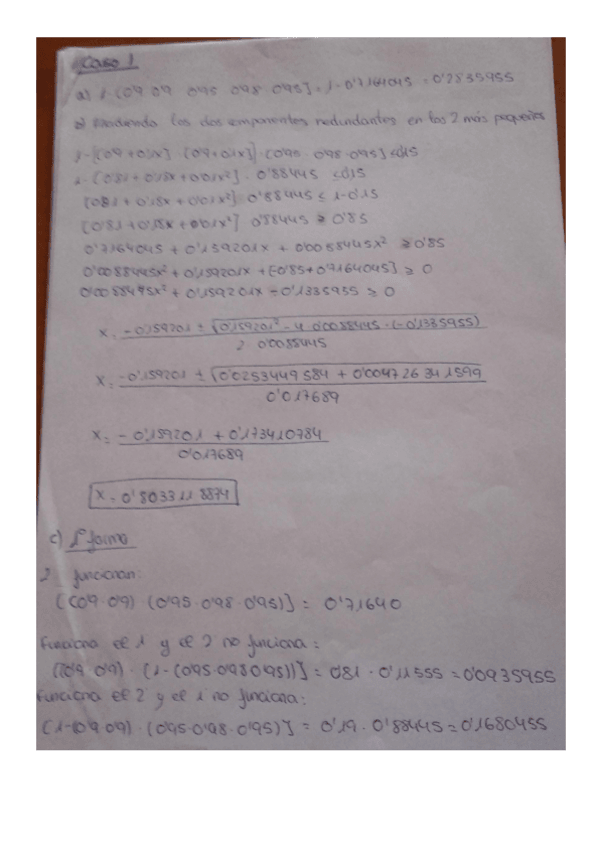 Caso 1
a) 1-[0'9·0'9·0'95·0'98·0'95] = 1-0'7164045 = 0'2835955
b) Añadiendo los dos componentes redundantes en los 2 más pequeños
1-[(0'9+0'1x)·(0'9+0'1x)]·[0'95·0'98·0'95] ≤ 0'15
1-[0'81+0'18x+0'01x²]·0'88445 ≤ 0'15
[0'81+0'18x+0'01x²]·0'88445 ≤ 1-0'15
[0'81+0'18x+0'01x²]·0'88445 ≥ 0'85
0'7164045 + 0'159201x + 0'0088445x² ≥ 0'85
0'0088445x² + 0'159201x + [-0'85+0'7164045] ≥ 0
0'0088445x² + 0'159201x - 0'1335955 ≥ 0
x = -0'159201 ± √(0'159201² - 4·0'0088445·(-0'1335955))
2·0'0088445
x = -0'159201 ± √(0'0253449584 + 0'004726341599)
0'017689
x = -0'159201 + 0'173410784
0'017689
x = 0'8033118874
c) 1ª forma
2 funcionan:
[(0'9·0'9)·(0'95·0'98·0'95)] = 0'71640
Funciona el 1 y el 2 no funciona:
[(0'9·0'9)·(1-(0'95·0'98·0'95))] = 0'81·0'11555 = 0'0935955
Funciona el 2 y el 1 no funciona:
(1-(0'9·0'9)·(0'95·0'98·0'95)] = 0'19·0'88445 = 0'1680455